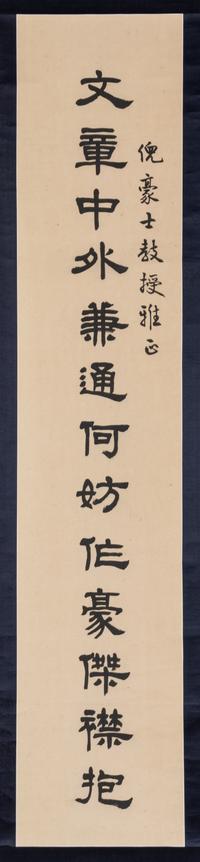 倪豪士教授雅正
文章中外兼通何妨作豪傑襟抱